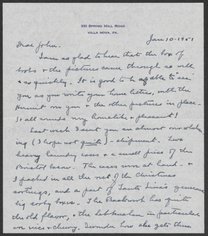 331 SPRING MILL ROAD
VILLA NOVA, PA.
Jan. 10 - 1951
Dear John,
I am so glad to hear that the box of
books & the pictures came through so well
& so quickly. It is good to be able to see
you, as you write your home letters, with the
on view & the other pictures in place.
It all sounds very homelike & pleasant!
Last week I sent you an almost
ing (I hope not quite) - shipment. Two
heavy laundry cases & a small price of the
. The cases were at hand &
I packed in all the rest of the Christmas
, and a part of Santa Lina's generous
big box. The has quite
the old flavor, & the in particular
are nice & chewy. I wonder how she gets them